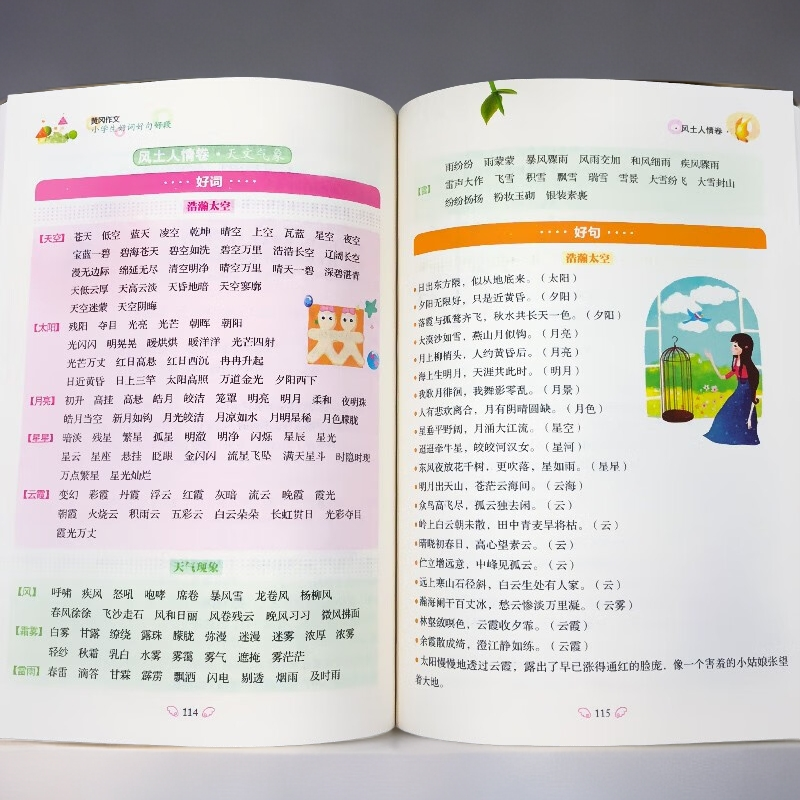 黄冈作文
小学生好词好句好段
风土人情卷·天文气象
好词
浩瀚太空
【天空】 苍天 低空 蓝天 凌空 乾坤 晴空 上空 瓦蓝 星空 夜空
宝蓝一碧 碧海苍天 碧空如洗 碧空万里 浩浩长空 辽阔长空
漫无边际 绵延无尽 清空明净 晴空万里 晴天一碧 深碧湛青
天低云厚 天高云淡 天昏地暗 天空寥廓
天空迷蒙 天空阴晦
【太阳】 残阳 夺目 光亮 光芒 朝晖 朝阳
光闪闪 明晃晃 暖烘烘 暖洋洋 光芒四射
光芒万丈 红日高悬 红日西沉 冉冉升起
日近黄昏 日上三竿 太阳高照 万道金光 夕阳西下
【月亮】 初升 高挂 高悬 皓月 皎洁 笼罩 明亮 明月 柔和 夜明珠
皓月当空 新月如钩 月光皎洁 月凉如水 月明星稀 月色朦胧
【星星】 暗淡 残星 繁星 孤星 明澈 明净 闪烁 星辰 星光
星云 星座 悬挂 眨眼 金闪闪 流星飞坠 满天星斗 时隐时现
万点繁星 星光灿烂
【云霞】 变幻 彩霞 丹霞 浮云 红霞 灰暗 流云 晚霞 霞光
朝霞 火烧云 积雨云 五彩云 白云朵朵 长虹贯日 光彩夺目
霞光万丈
天气现象
【风】 呼啸 疾风 怒吼 咆哮 席卷 暴风雪 龙卷风 杨柳风
春风徐徐 飞沙走石 风和日丽 风卷残云 晚风习习 微风拂面
【霜雾】 白雾 甘露 缭绕 露珠 朦胧 弥漫 迷漫 迷雾 浓厚 浓雾
轻纱 秋霜 乳白 水雾 雾霭 雾气 遮掩 雾茫茫
【雷雨】 春雷 滴答 甘霖 霹雳 飘洒 闪电 剔透 烟雨 及时雨
114
风土人情卷
雨纷纷 雨蒙蒙 暴风骤雨 风雨交加 和风细雨 疾风骤雨
雷声大作 飞雪 积雪 飘雪 瑞雪 雪景 大雪纷飞 大雪封山
纷纷扬扬 粉妆玉砌 银装素裹
好句
浩瀚太空
日出东方隈，似从地底来。（太阳）
夕阳无限好，只是近黄昏。（夕阳）
落霞与孤鹜齐飞，秋水共长天一色。（夕阳）
大漠沙如雪，燕山月似钩。（月亮）
月上柳梢头，人约黄昏后。（月亮）
海上生明月，天涯共此时。（明月）
我歌月徘徊，我舞影零乱。（月景）
人有悲欢离合，月有阴晴圆缺。（月色）
星垂平野阔，月涌大江流。（星空）
迢迢牵牛星，皎皎河汉女。（星河）
东风夜放花千树，更吹落，星如雨。（星星）
明月出天山，苍茫云海间。（云海）
众鸟高飞尽，孤云独去闲。（云）
岭上白云朝未散，田中青麦旱将枯。（云）
晴晓初春日，高心望素云。（云）
伫立增远意，中峰见孤云。（云）
远上寒山石径斜，白云生处有人家。（云）
瀚海阑干百丈冰，愁云惨淡万里凝。（云雾）
林壑敛暝色，云霞收夕霏。（云霞）
余霞散成绮，澄江静如练。（云霞）
太阳慢慢地透过云霞，露出了早已涨得通红的脸庞，像一个害羞的小姑娘张望
着大地。
115